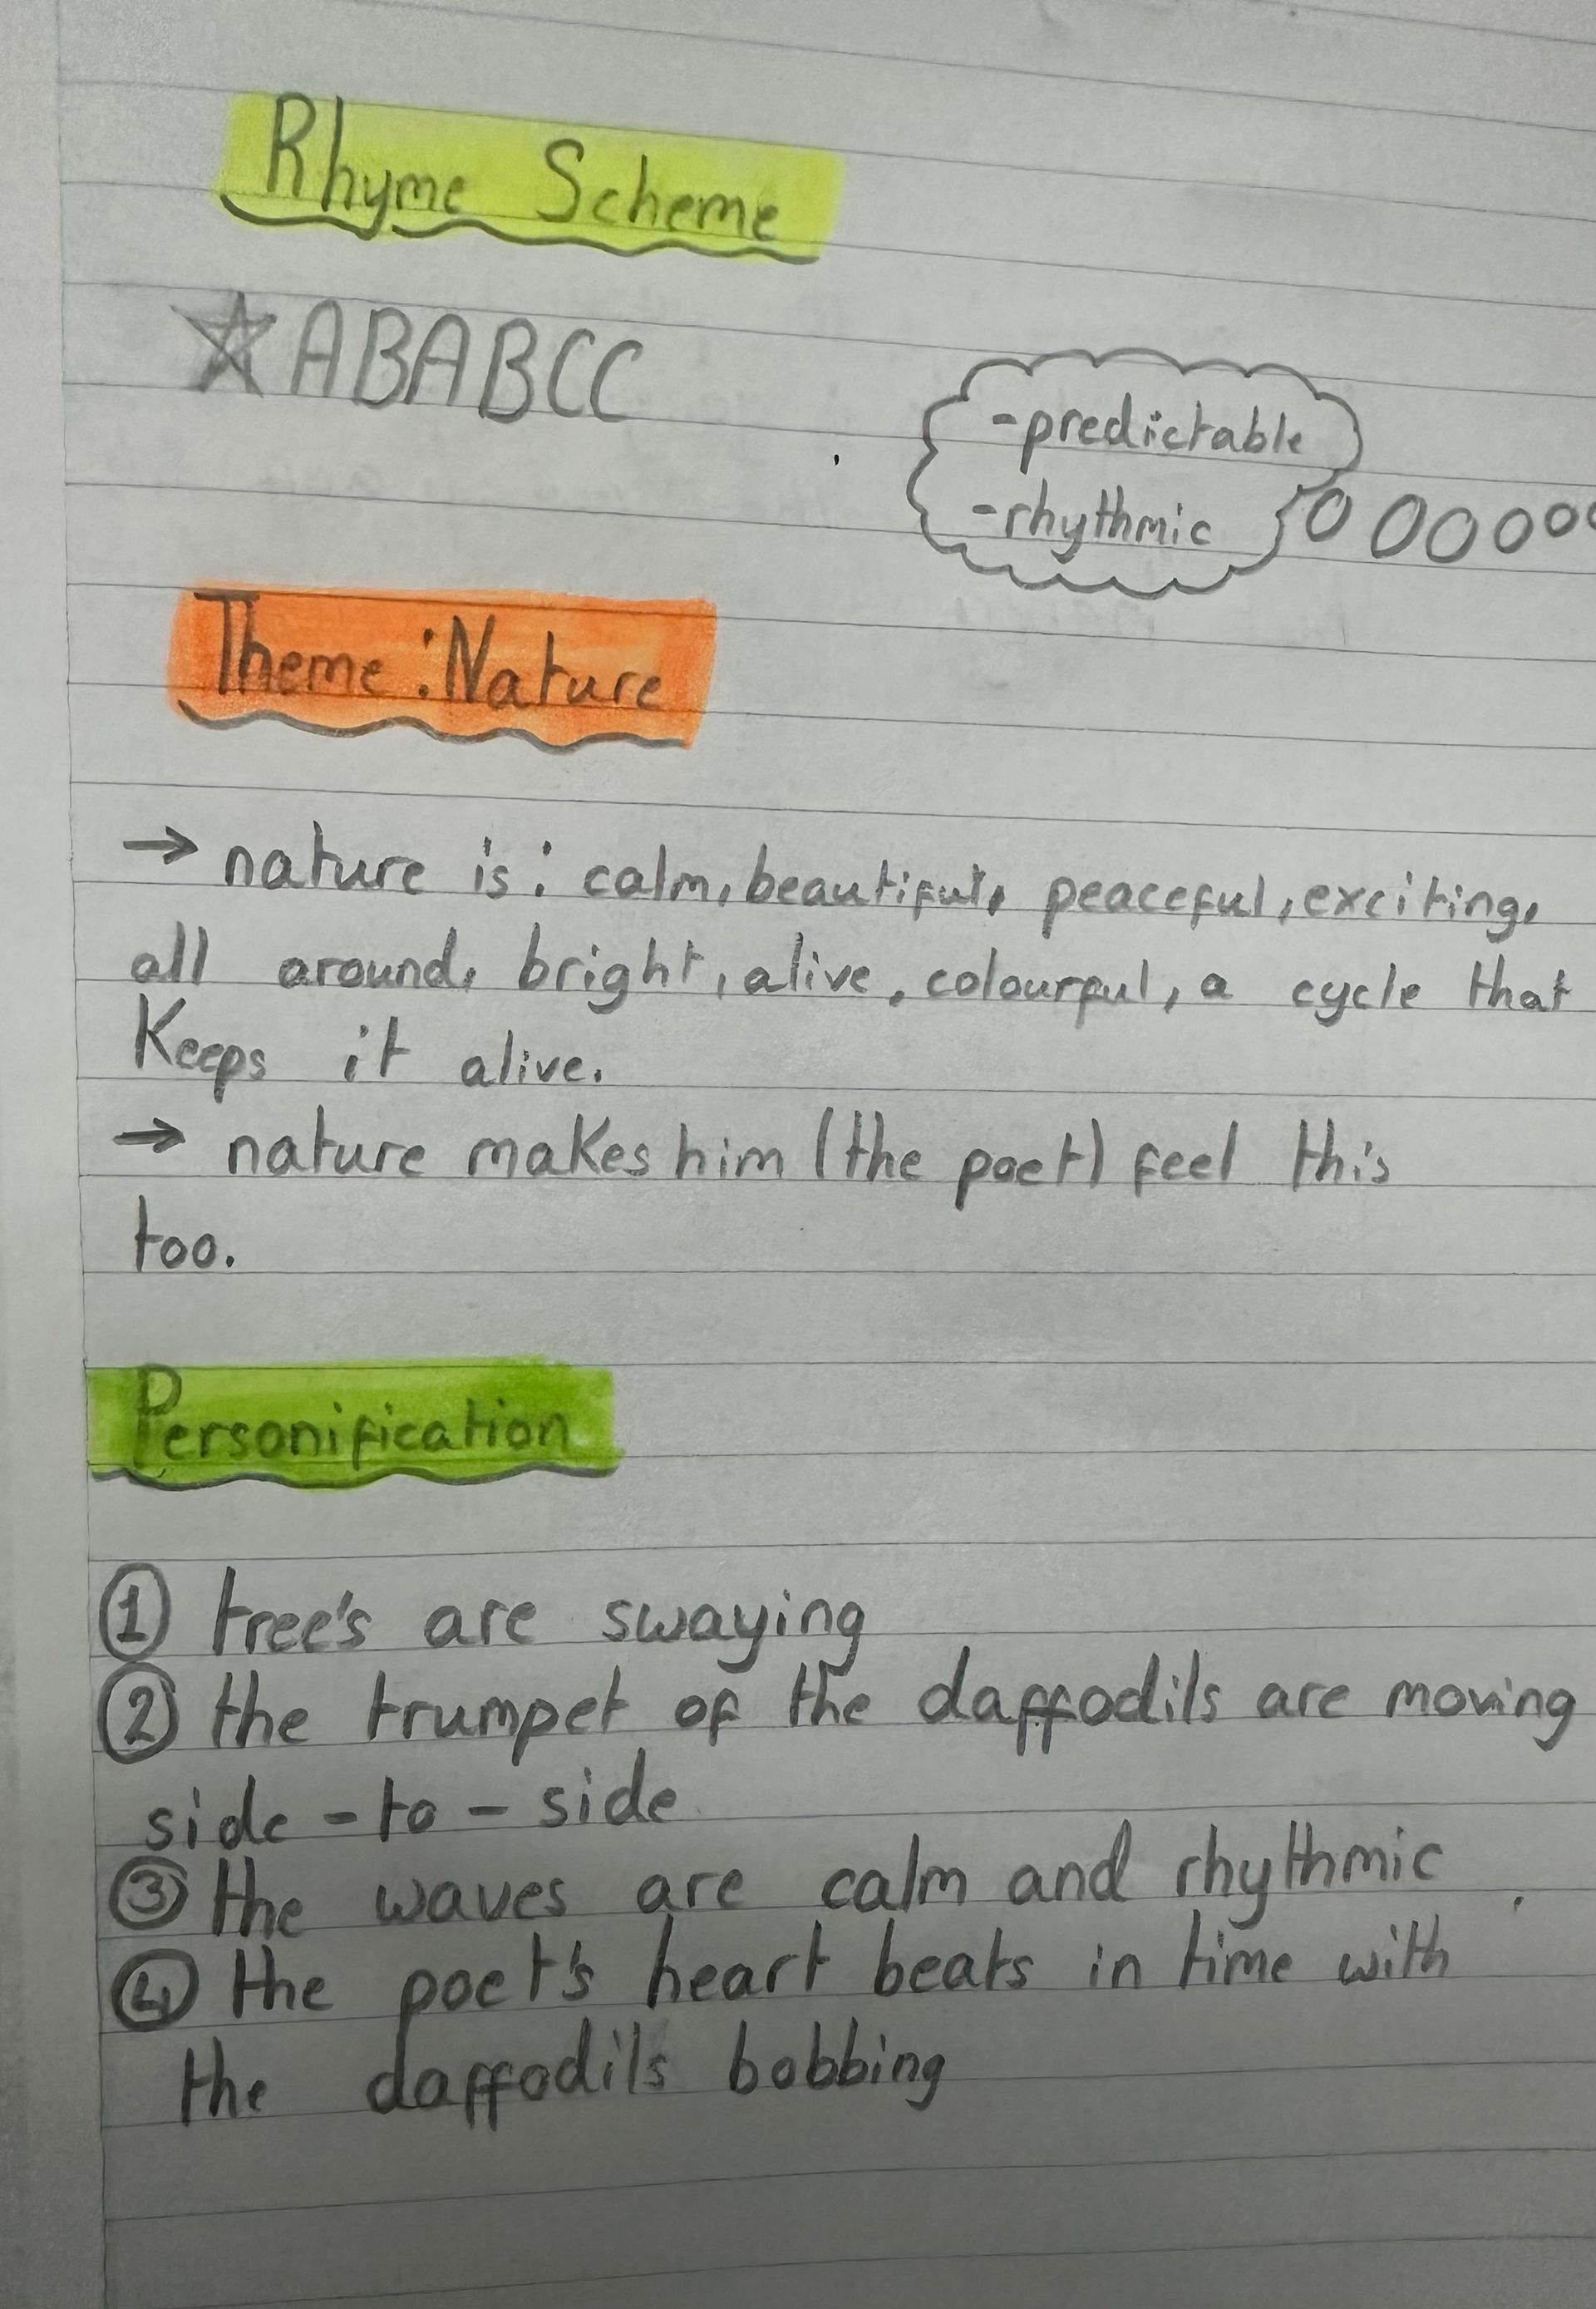 Rhyme Scheme
ABABCC
-predictable
-rhythmic
Theme: Nature
→ nature is: calm, beautiful, peaceful, exciting,
all around, bright, alive, colourful, a cycle that
Keeps it alive.
→ nature makes him (the poet) feel this
too.
Personification
① tree's are swaying
② the trumpet of the daffodils are moving
side-to-side
③ the waves are calm and rhythmic
④ the poet's heart beats in time with
the daffodils bobbing